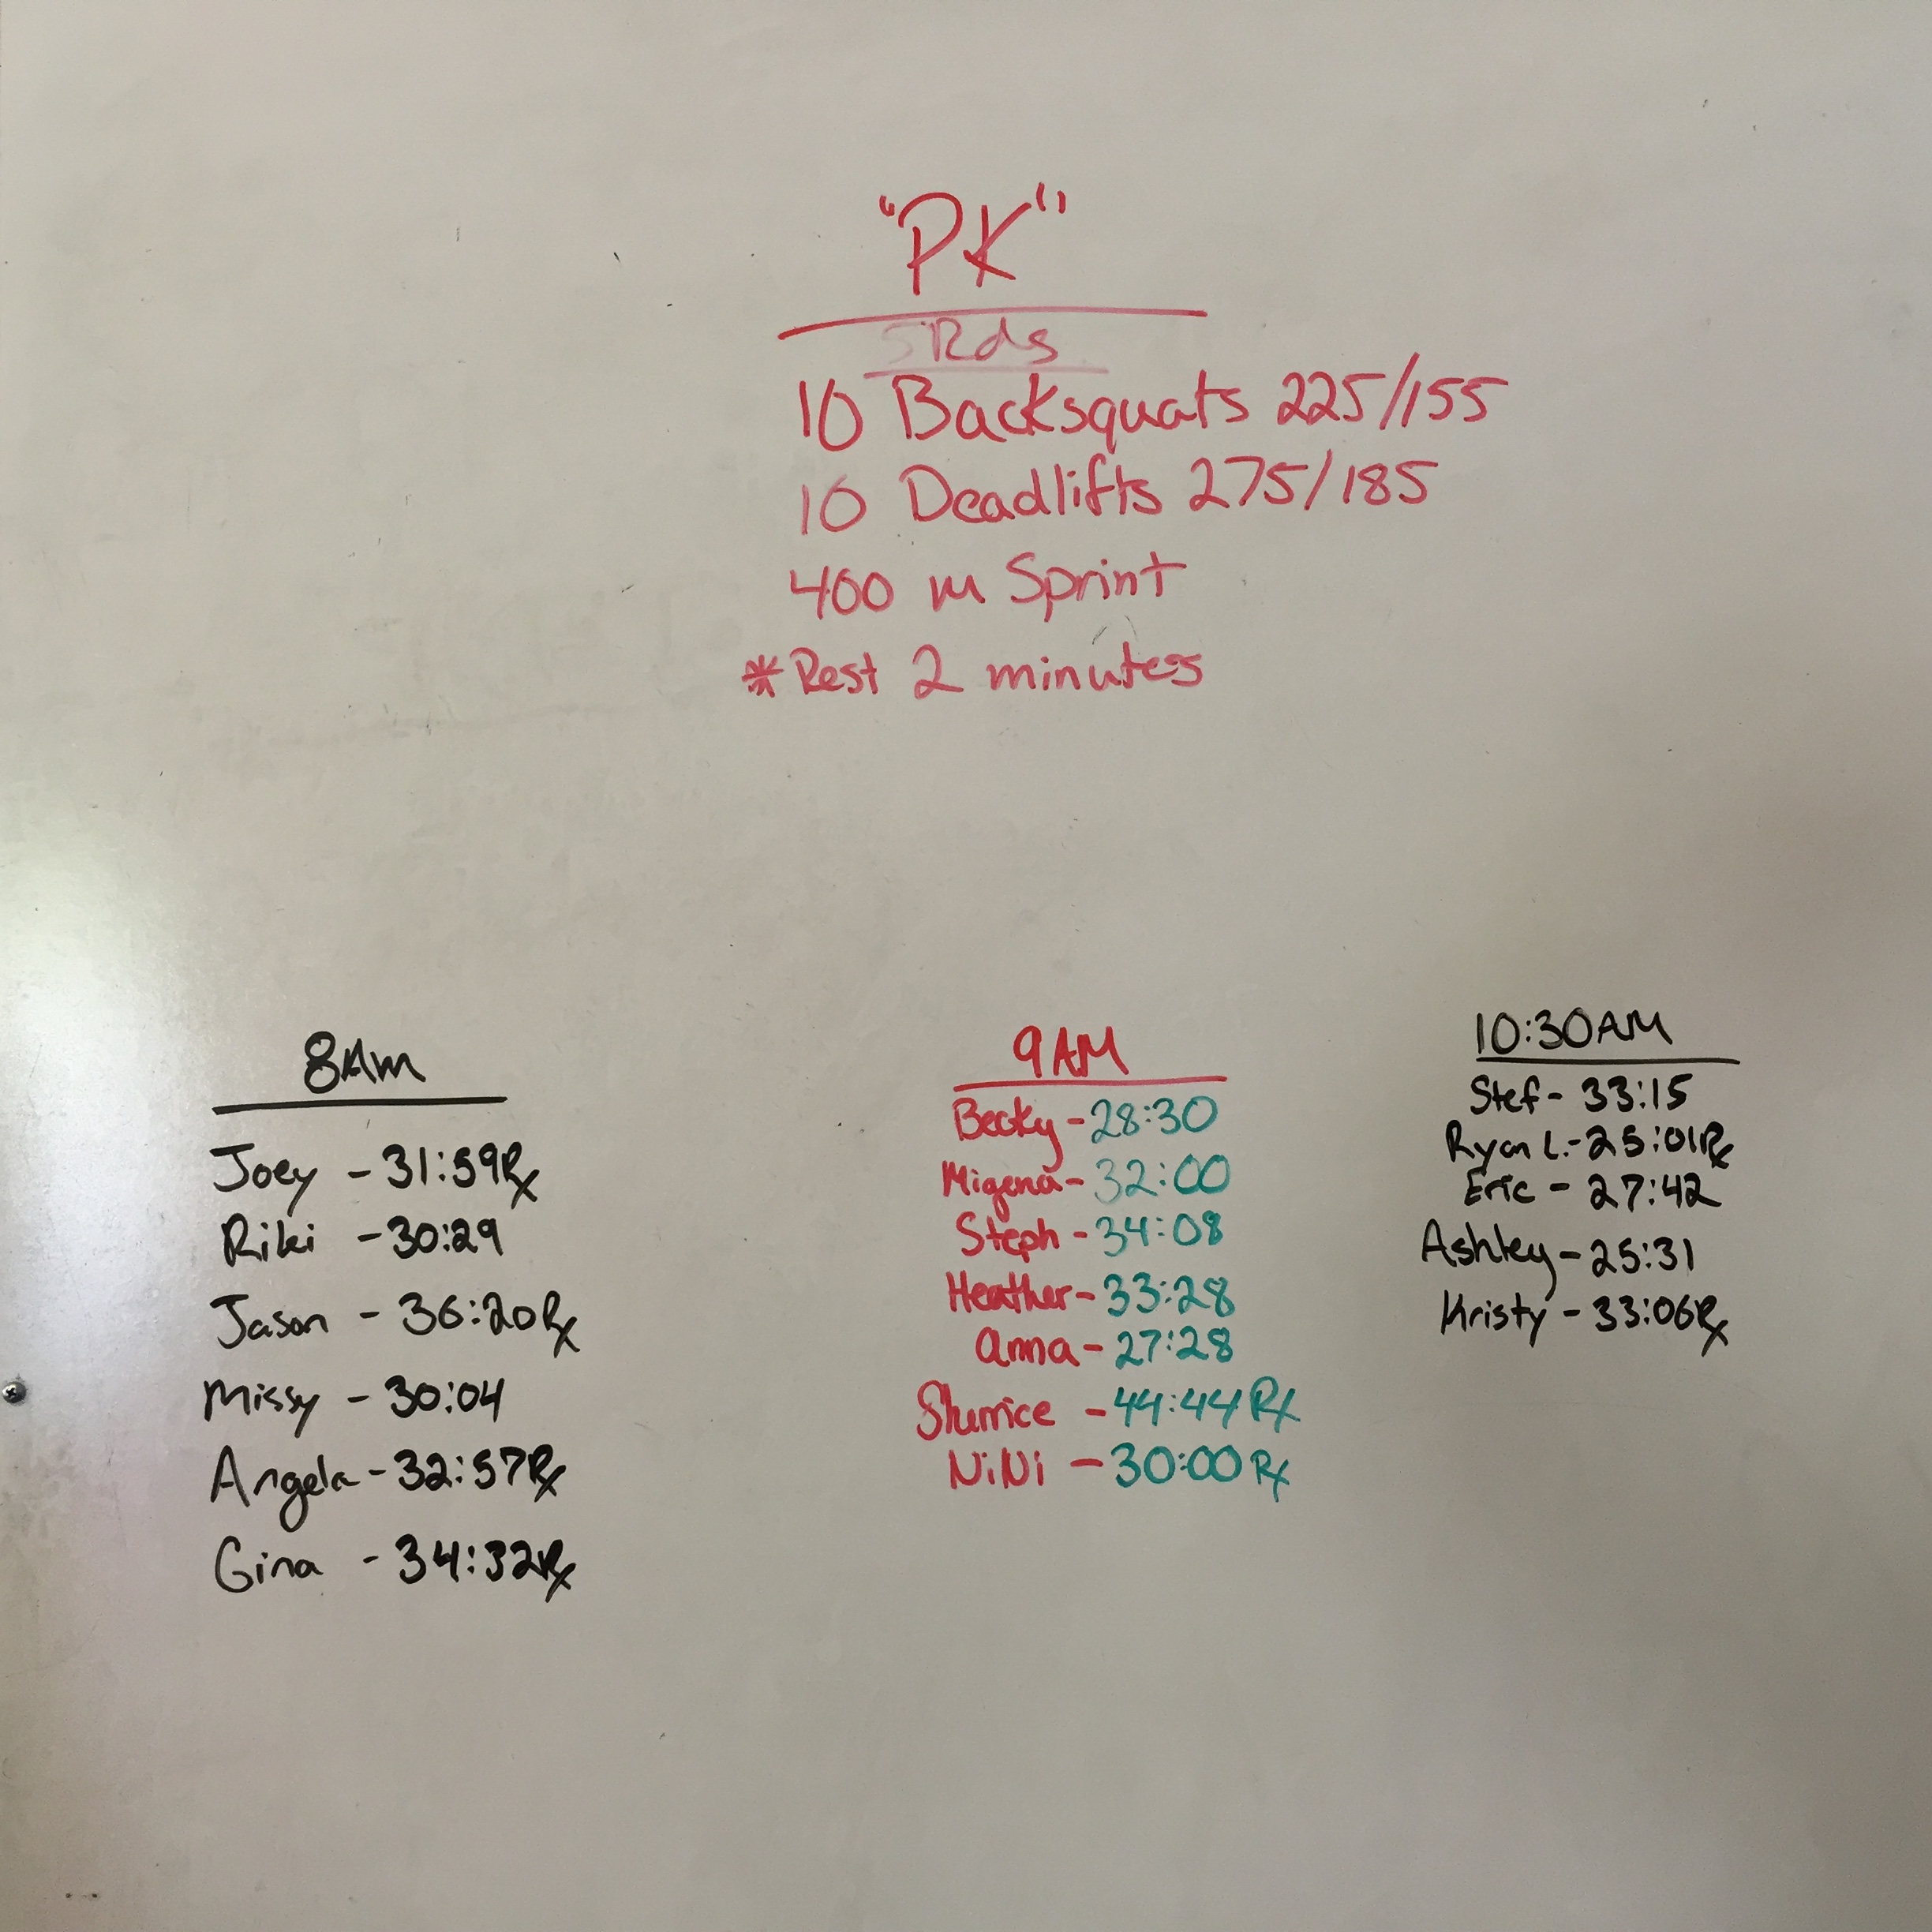 "PK"
5 Rds
10 Backsquats 225/155
10 Deadlifts 275/185
400 m Sprint
*Rest 2 minutes
8AM
Joey - 31:59Rx
Riki - 30:29
Jason - 36:20Rx
Missy - 30:04
Angela - 32:57Rx
Gina - 34:32Rx
9AM
Becky - 28:30
Migena - 32:00
Steph - 34:08
Heather - 33:28
Anna - 27:28
Slurrice - 44:44 Rx
NiNi - 30:00 Rx
10:30AM
Stef - 33:15
Ryan L. - 25:01Rx
Eric - 27:42
Ashley - 25:31
Kristy - 33:06Rx